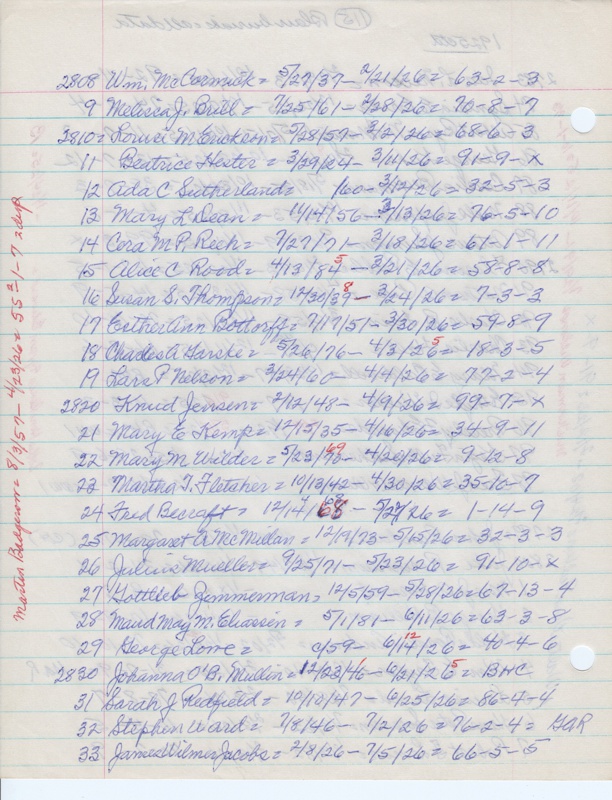 2808 Wm. McCormick = 5/27/37 - 2/21/26 = 63-2-3
9 Melissa J. Brill = 7/25/61 - 2/28/26 = 70-8-7
2810 = M Erickson = 5/28/57 - 3/2/26 = 68-6-3
11 Beatrice Hester = 3/29/24 - 3/11/26 = 91-9-x
12 Ada C Sutherland = /60 - 3/12/26 = 32-5-3
13 Mary L Dean = 11/14/56 - 3/13/26 = 76-5-10
14 Cora M P. Reeh = 7/27/71 - 3/18/26 = 61-1-11
15 Alice C Rood = 4/13/84 5 - 3/21/26 = 58-8-8
16 Susan S. Thompson = 12/30/39 8 - 3/24/26 = 7-3-3
17 Esther Ann Bottorff = 7/17/51 - 3/30/26 = 59-8-9
18 Charles A Harske = 5/26/76 - 4/3/26 5 = 18-3-5
19 Lars P Nelson = 3/24/60 - 4/4/26 = 77-2-4
2820 Knud Jensen = 2/12/48 - 4/9/26 = 99-7-x
21 Mary E Kemp = 12/15/35 - 4/16/26 = 34-9-11
22 Mary M Wilder = 5/23/70 69 - 4/20/26 = 9-12-8
23 Martha T. Fletcher = 10/13/42 - 4/30/26 = 35-10-7
24 Fred Becraft = 12/14/68 - 5/27/26 = 1-14-9
25 Margaret A McMillan = 12/19/73 - 5/15/26 = 32-3-3
26 Julius Mueller = 9/25/71 - 5/23/26 = 91-10-x
27 Gottlieb Zimmerman = 12/5/59 - 5/28/26 = 67-13-4
28 Maud May M. Eliassen = 5/1/81 - 6/11/26 = 63-3-8
29 George Lowe = c/59 - 6/14 12/26 = 40-4-6
2830 Johanna O'B. Mullin = 12/23/46 - 6/21/26 5 = BHC
31 Sarah J Redfield = 10/10/47 - 6/25/26 = 86-4-4
32 Stephen Ward = 7/8/46 - 7/2/26 = 76-2-4 = GAR
33 James Wilmer Jacobs = 2/8/26 - 7/5/26 = 66-5-5
= 8/3/57 - 4/23/26 = 55 2-1-7 2dep